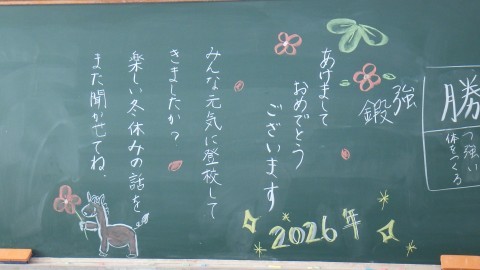 勝
つ強い
体をつくる
強
鍛
あけまして
おめでとう
ございます
みんな元気に登校して
きましたか?
楽しい冬休みの話を
また聞かせてね。
2026年